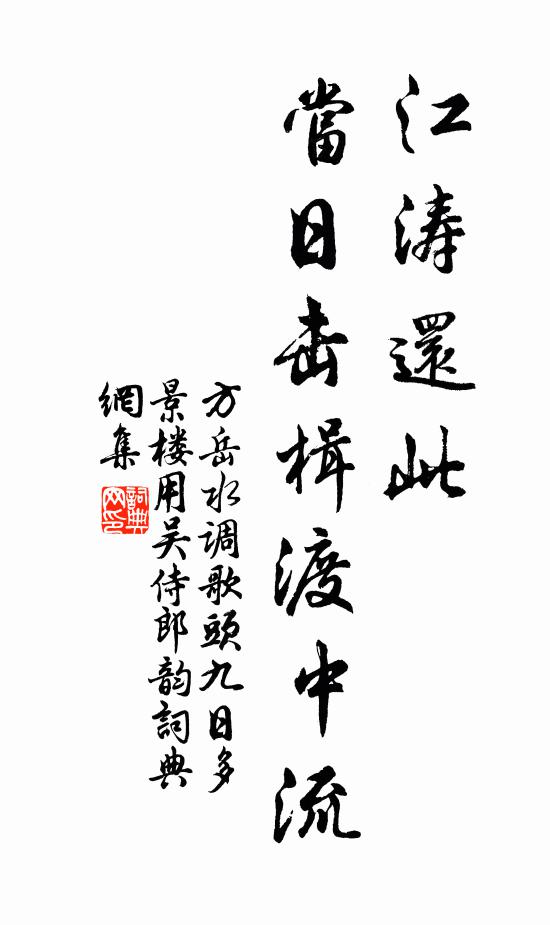 江濤還此
當日击楫渡中流
方岳水调歌頭九日多
景楼用吴侍郎韵詞典
網集
詞典
网印